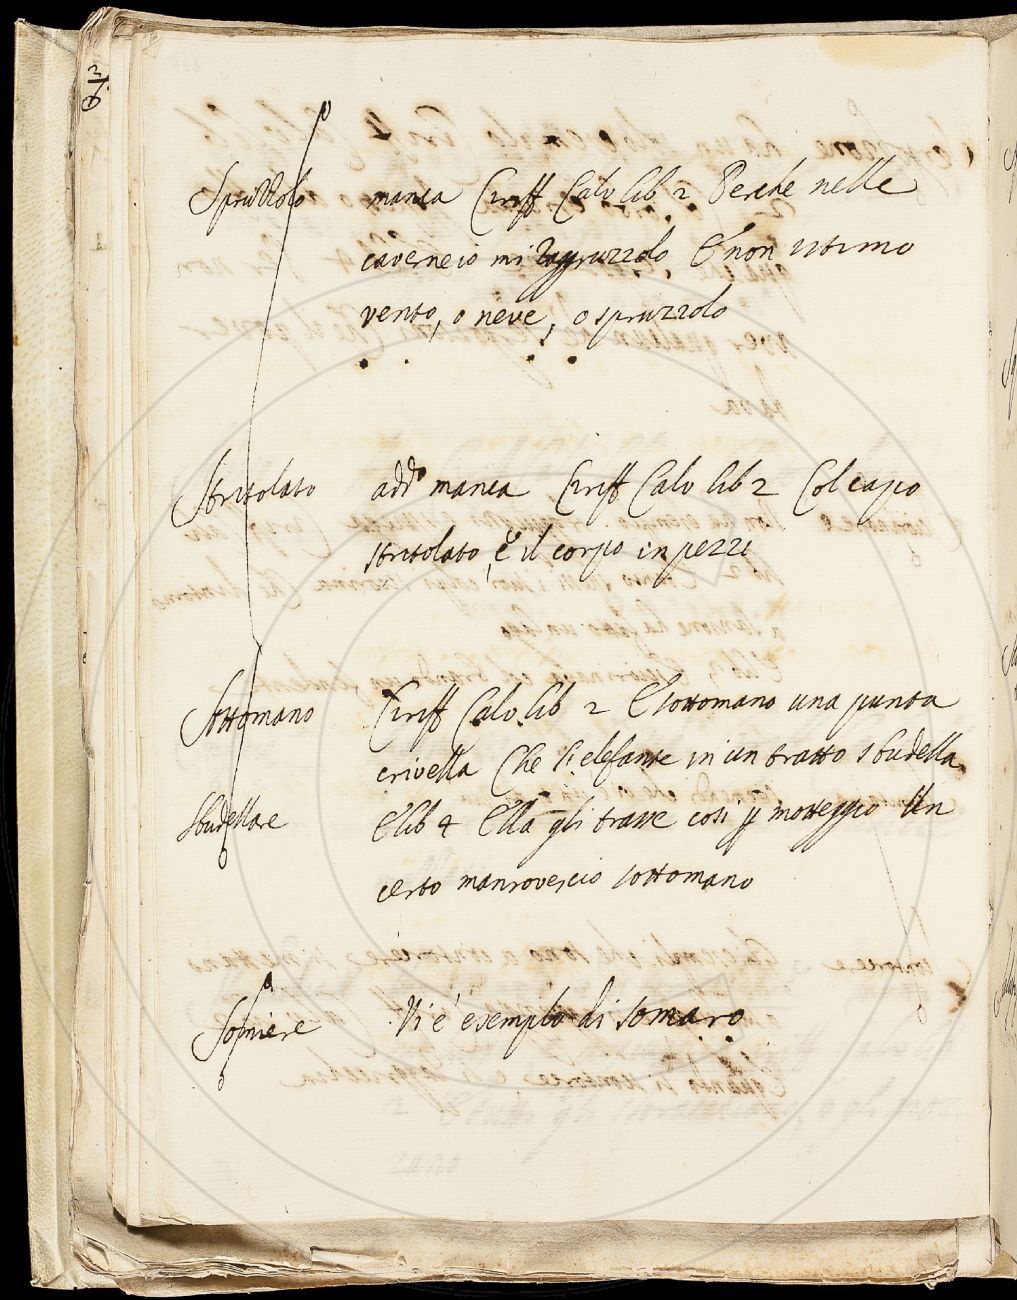 Spruzzolo manca Ciriff Calv. lib. 2. Perche nelle
caverne io mi raggruzzolo E non istimo
vento, o neve, o spruzzolo
Stritolato add.o manca Ciriff Calv lib 2 Col capo
stritolato, e il corpo in pezzi
Sottomano Ciriff Calv. lib 2 E sottomano una punta
crivella Che li elefante in un tratto sbudella
Sbudellare E lib 4 Ella gli trasse così p motteggio Un
certo manrovescio sottomano
Somiere Vi è esemplo di somaro